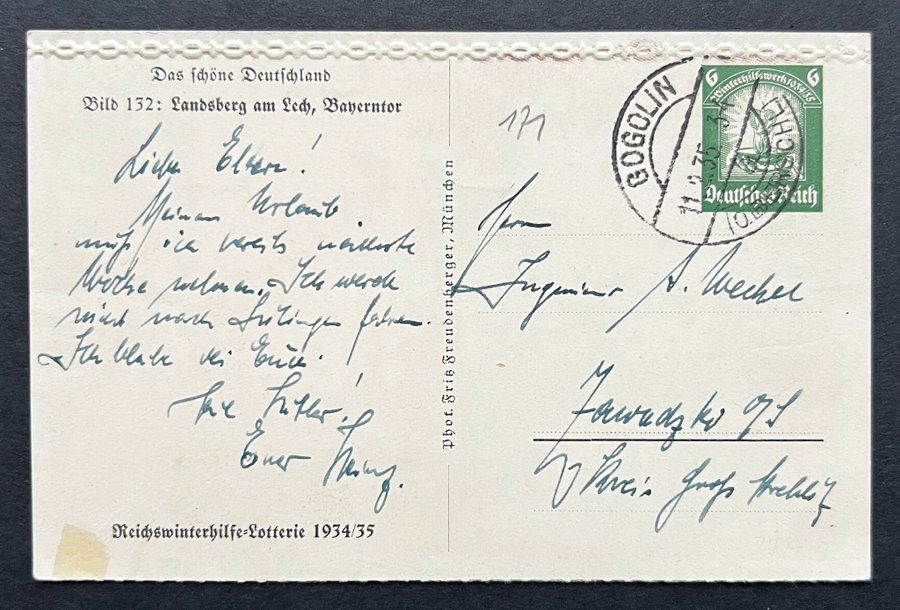 Das schöne Deutschland
Bild 132: Landsberg am Lech, Bayerntor
Liebe Eltern!
Meinen Urlaub
muß ich bereits nächste
Woche nehmen. Ich werde
nicht nach fahren.
Ich bleibe bei Euch!
Heil Hitler!
Euer Heinz.
Reichswinterhilfe-Lotterie 1934/35
Phot. Fritz Freudenberger, München
171
GOGOLIN
11.3.35
6 Winterhilfswerk 1934/35 6
Deutsches Reich
Herrn
Ingenieur A. Wechel
Zawadzki O/S
Kreis Groß Strehlitz